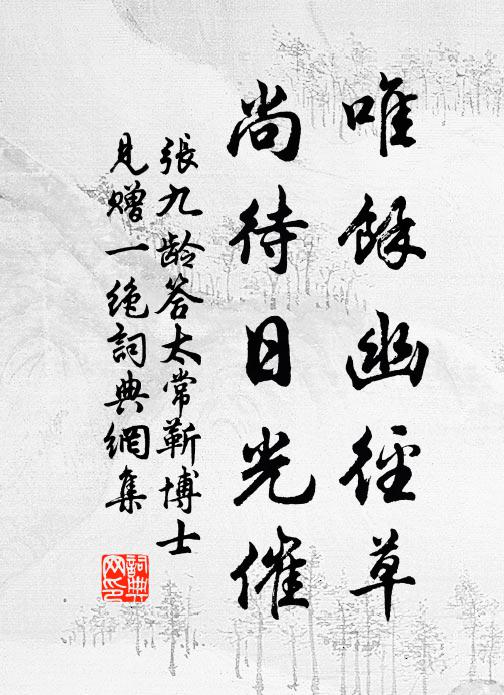 唯餘幽徑草
尚待日光催
張九齡答太常靳博士
見贈一絕詞典網集
詞典
网印